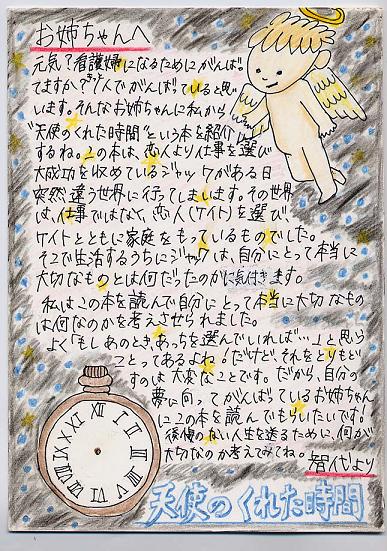 お姉ちゃんへ
元気？看護婦になるためにがんばっ
てますか？きっと1人でがんばっていると思
います。そんなお姉ちゃんに私から
"天使のくれた時間"という本を紹介
するね。この本は、恋人より仕事を選び
大成功を収めているジャックがある日
突然違う世界に行ってしまいます。その世界
は、仕事ではなく、恋人(ケイト)を選び
ケイトとともに家庭をもっているものでした。
そこで生活するうちにジャックは、自分にとって本当に
大切なものとは何だったのかに気付きます。
私はこの本を読んで自分にとって本当に大切なもの
は何なのかを考えさせられました。
よく「もしあのとき、あっちを選んでいれば…」と思う
ことってあるよね！だけど、それをとりもど
すのは大変なことです。だから、自分の
夢に向ってがんばっているお姉ちゃん
にこの本を読んでもらいたいです！
後悔のない人生を送るために、何が
大切なのか考えてみてね。
智代より
天使のくれた時間